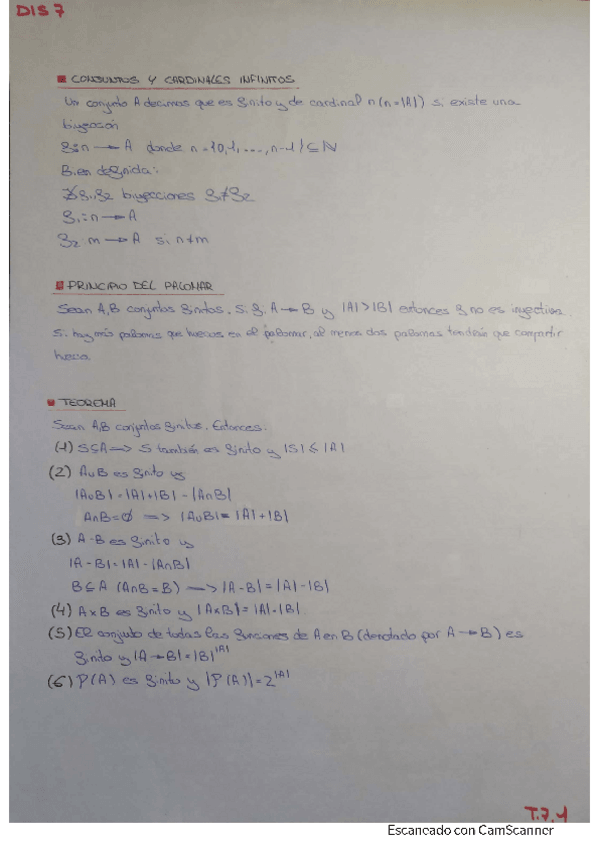 DIS 7
CONJUNTOS Y CARDINALES INFINITOS
Un conjunto A decimos que es finito y de cardinal n (n=|A|) si existe una
biyección
f: n → A donde n = {0, 1, ..., n-1} ⊆ ℕ
Bien definida:
∄ f1, f2 biyecciones f1 ≠ f2
f1: n → A
f2 m → A si n ≠ m
PRINCIPIO DEL PALOMAR
Sean A, B conjuntos finitos. Si f: A → B y |A| > |B| entonces f no es inyectiva.
Si hay más palomas que huecos en el palomar, al menos dos palomas tendrán que compartir
hueco.
TEOREMA
Sean A, B conjuntos finitos. Entonces:
(1) S ⊆ A => S también es finito y |S| ≤ |A|
(2) A∪B es finito y
|A∪B| = |A| + |B| - |A∩B|
A∩B = ∅ => |A∪B| = |A| + |B|
(3) A - B es finito y
|A - B| = |A| - |A∩B|
B ⊆ A (A∩B = B) → |A - B| = |A| - |B|
(4) A×B es finito y |A×B| = |A|·|B|.
(5) El conjunto de todas las funciones de A en B (denotado por A → B) es
finito y |A → B| = |B|^|A|
(6) P(A) es finito y |P(A)| = 2^|A|
T.7.1
Escaneado con CamScanner